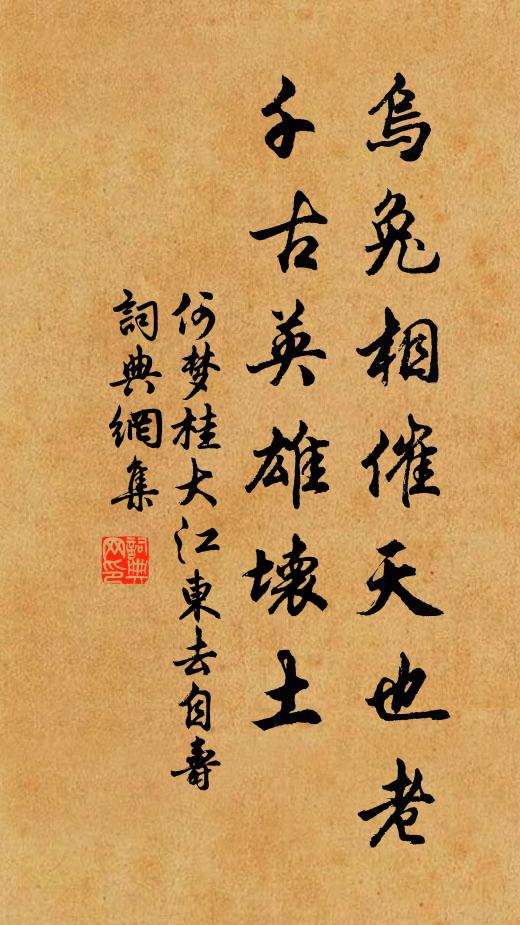 烏兔相催天也老
千古英雄壞土
何梦桂大江東去自壽
詞典網集
詞典网印